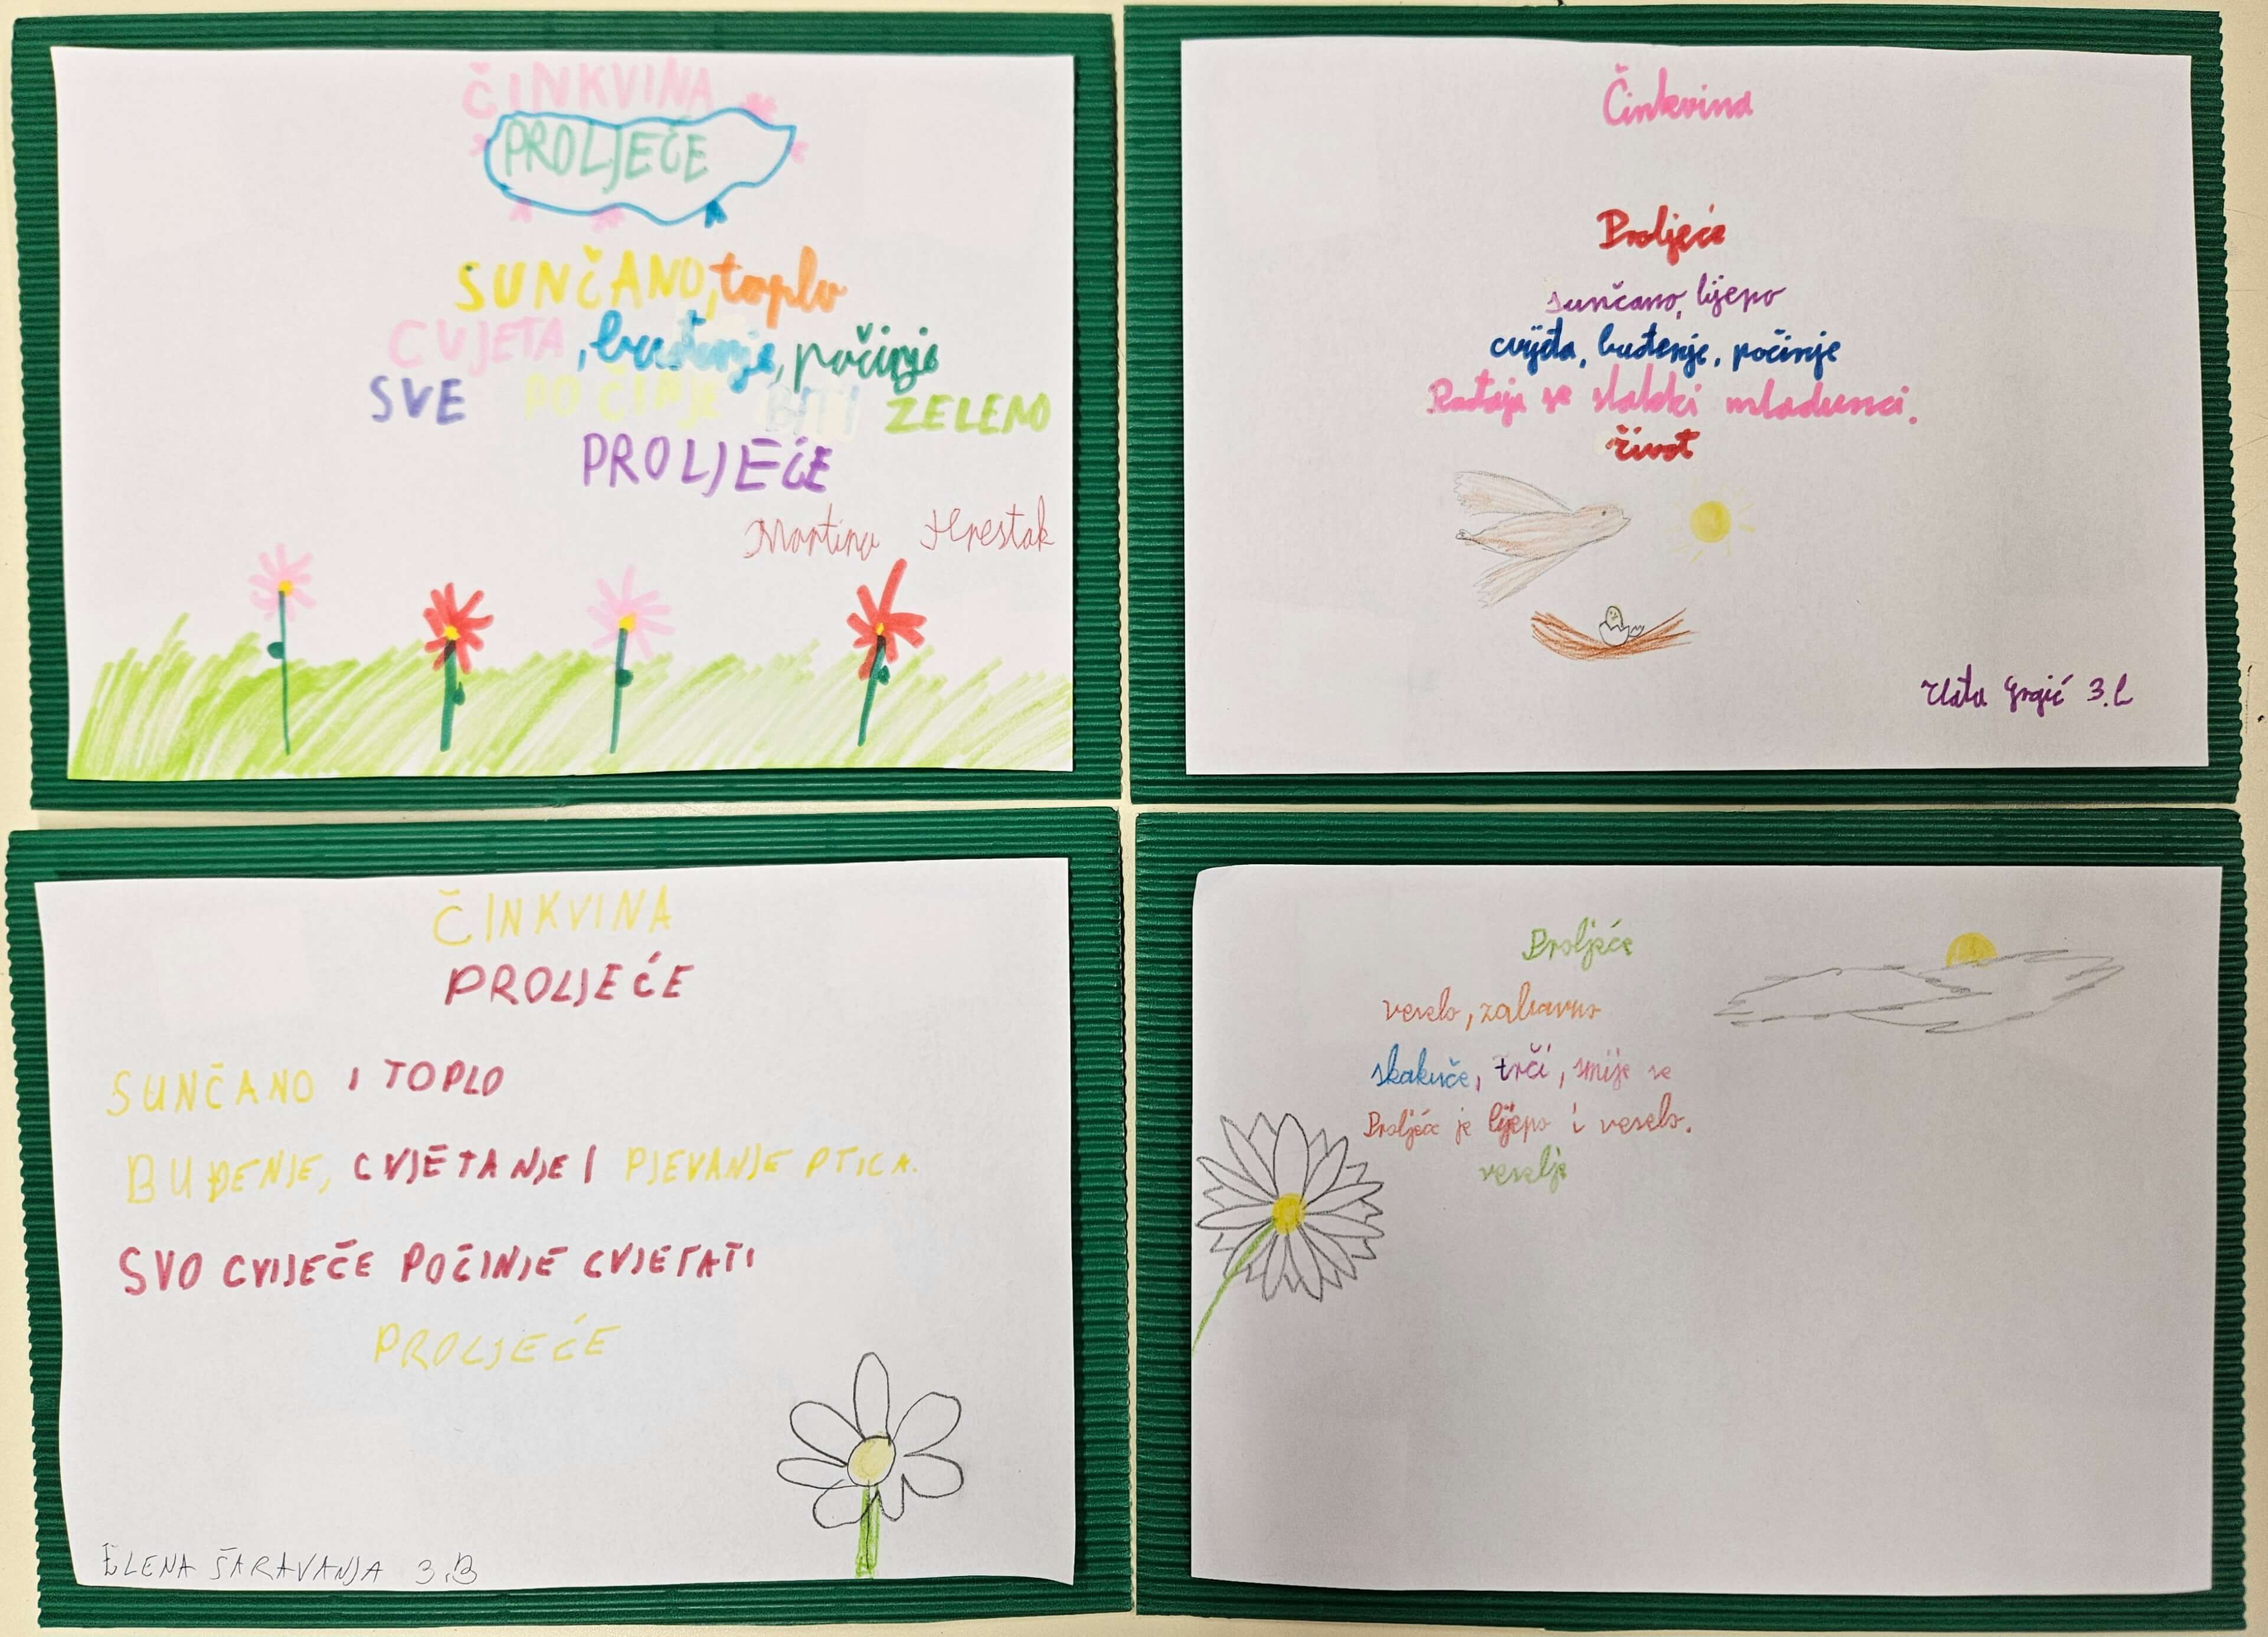 ČINKVINA
PROLJEĆE
SUNČANO, toplo
CVJETA, buđenje, počinje
SVE POČINJE BITI ZELENO
PROLJEĆE
Martina Hrestak
Činkvina
Proljeće
sunčano, lijepo
cvijeta, buđenje, počinje
Rađaju se slatki mladunci.
život
Zlata Grgić 3.b
ČINKVINA
PROLJEĆE
SUNČANO I TOPLO
BUĐENJE, CVJETANJE I PJEVANJE PTICA.
SVO CVIJEČE POČINJE CVJETATI
PROLJEĆE
ELENA ŠARAVANJA 3.B
Proljeće
veselo, zabavno
skakuče, trči, smije se
Proljeće je lijepo i veselo.
veselje